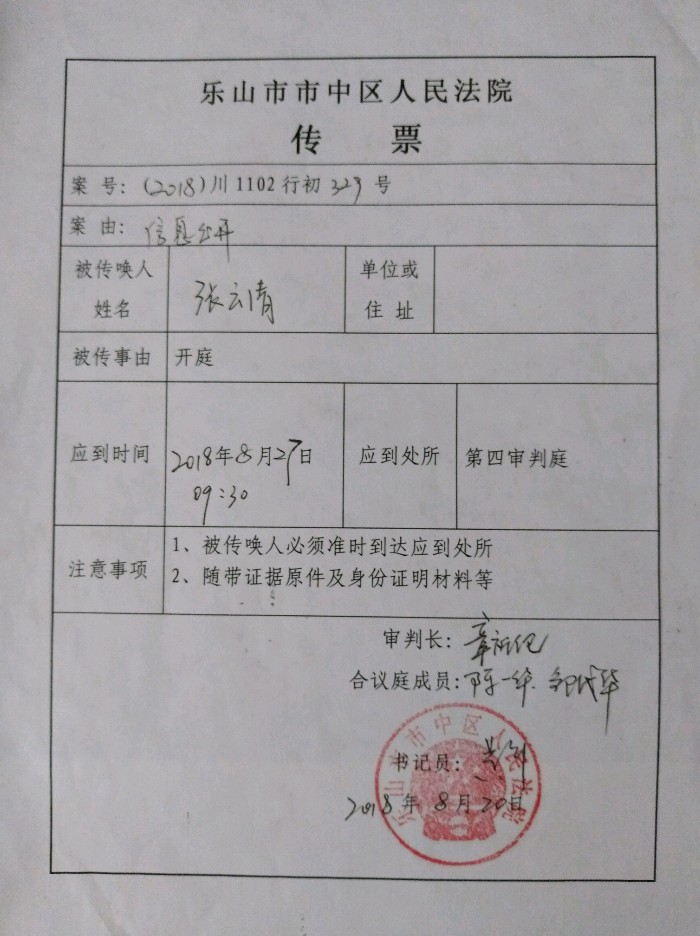 乐山市市中区人民法院
传 票
案 号：(2018)川1102行初323号
案 由：信息公开
被传唤人姓名 张云清 单位或住址
被传事由 开庭
应到时间 2018年8月27日 09:30 应到处所 第四审判庭
注意事项
1、被传唤人必须准时到达应到处所
2、随带证据原件及身份证明材料等
审判长：
合议庭成员：陈一华
书记员：
2018年8月20日
乐山市市中区人民法院